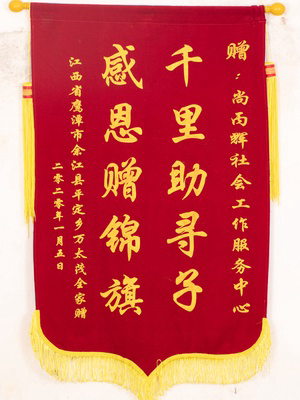 赠：尚丙辉社会工作服务中心
千里助寻子
感恩赠锦旗
江西省鹰潭市余江县平定乡万太茂全家赠
二零二零年一月五日